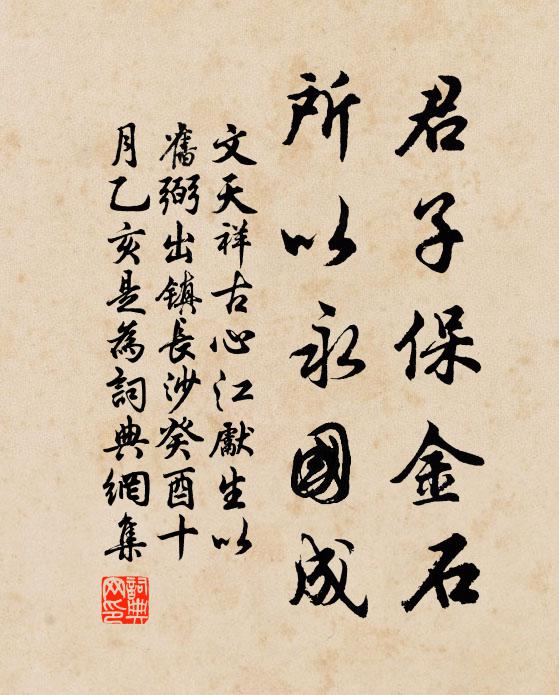 君子保金石
所以永國成
文天祥古心江獻生以
舊弼出鎮長沙癸酉十
月乙亥是為詞典網集
詞典网印